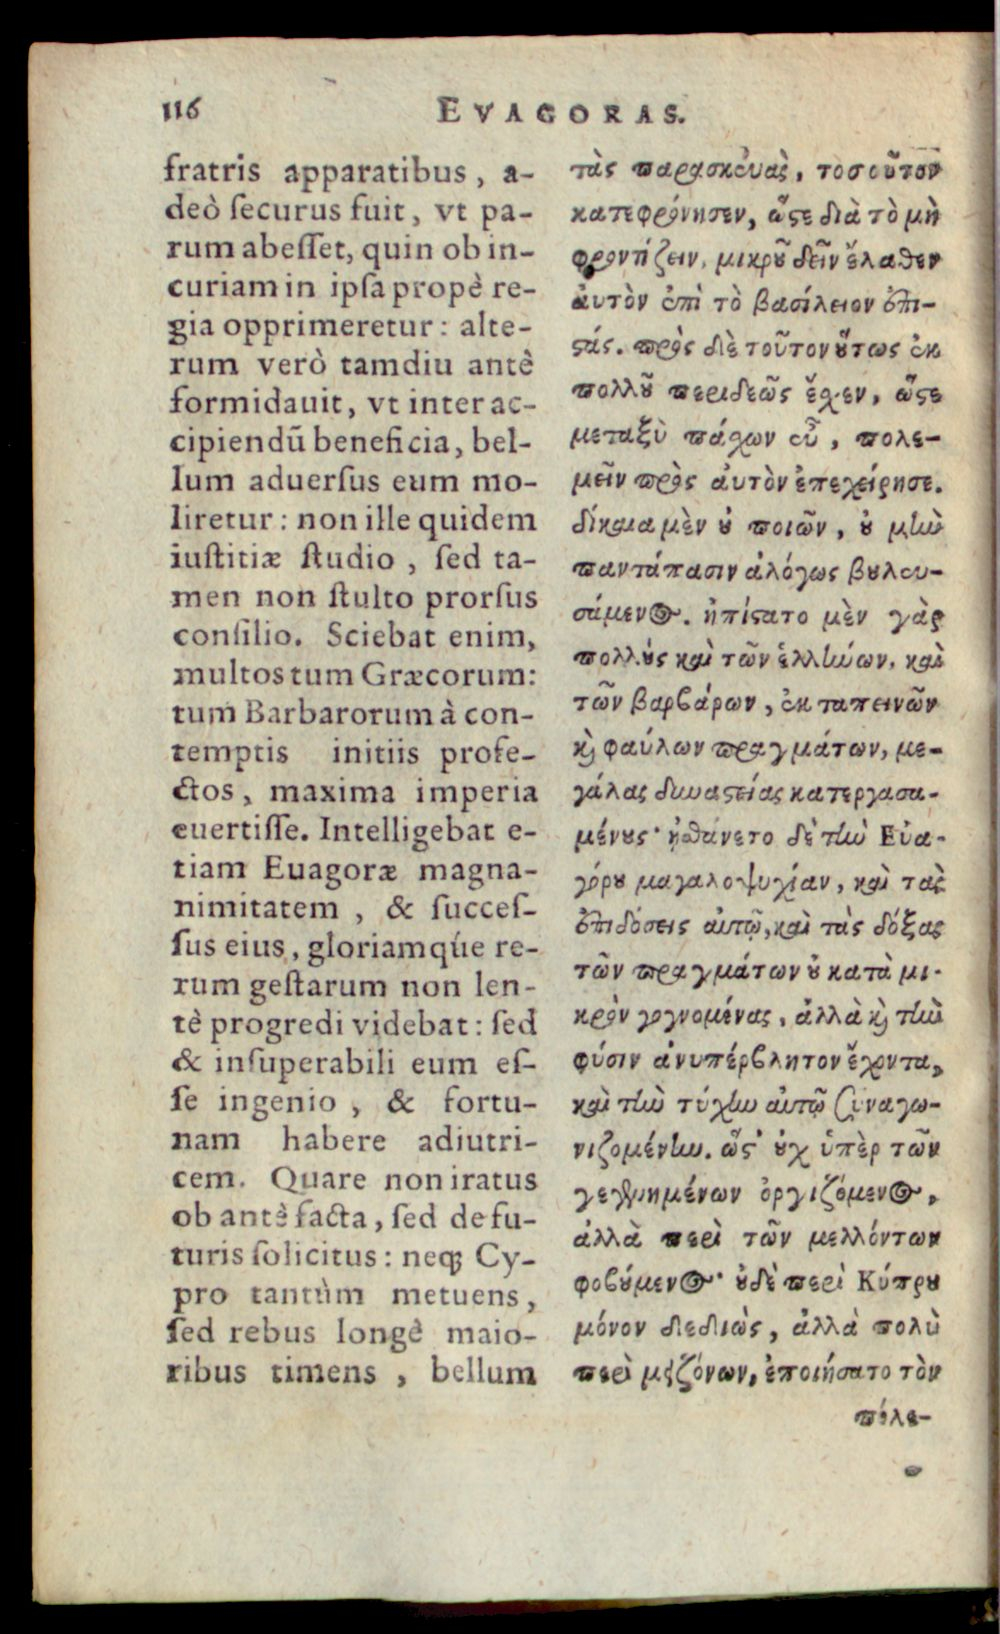 116
EVAGORAS.
fratris apparatibus, a-
deò ſecurus fuit, vt pa-
rum abeſſet, quin ob in-
curiam in ipſa propè re-
gia opprimeretur: alte-
rum verò tamdiu antè
formidauit, vt inter ac-
cipiendū beneficia, bel-
lum aduerſus eum mo-
liretur: non ille quidem
iuſtitiæ ſtudio, ſed ta-
men non ſtulto prorſus
conſilio. Sciebat enim,
multos tum Græcorum:
tum Barbarorum à con-
temptis initiis profe-
ctos, maxima imperia
euertiſſe. Intelligebat e-
tiam Euagoræ magna-
nimitatem, & ſucceſ-
ſus eius, gloriamqúe re-
rum geſtarum non len-
tè progredi videbat: ſed
& inſuperabili eum eſ-
ſe ingenio, & fortu-
nam habere adiutri-
cem. Quare non iratus
ob antè facta, ſed de fu-
turis ſolicitus: neq; Cy-
pro tantùm metuens,
ſed rebus longè maio-
ribus timens, bellum
τὰς παρασκευὰς, τοσοῦτον
κατεφρόνησεν, ὥςε διὰ τὸ μὴ
φροντίζειν, μικροῦ δεῖν ἔλαθεν
ἀυτὸν ἐπὶ τὸ βασίλειον ἐπι-
ςάς. πρὸς δὲ τοῦτον οὕτως ἐκ
πολλοῦ περιδεῶς ἔχεν, ὥςε
μεταξὺ πάχων εὖ, πολε-
μεῖν πρὸς ἀυτὸν ἐπεχείρησε.
δίκαια μὲν οὐ ποιῶν, οὐ μὴν
παντάπασιν ἀλόγως βουλευ-
σάμενος. ἠπίςατο μὲν γὰρ
πολλοὺς καὶ τῶν ἑλλήνων, καὶ
τῶν βαρβάρων, ἐκ ταπεινῶν
καὶ φαύλων πραγμάτων, με-
γάλας δυναςείας κατεργασα-
μένους· ᾐσθάνετο δὲ τὴν Εὐα-
γόρου μαγαλοψυχίαν, καὶ τὰς
ἐπιδόσεις αὐτῷ, καὶ τὰς δόξας
τῶν πραγμάτων οὐ κατὰ μι-
κρὸν γιγνομένας, ἀλλὰ καὶ τὴν
φύσιν ἀνυπέρβλητον ἔχοντα,
καὶ τὴν τύχην αὐτῷ συναγω-
νιζομένην. ὥς᾽ οὐχ ὑπὲρ τῶν
γεγενημένων ὀργιζόμενος,
ἀλλὰ περὶ τῶν μελλόντων
φοβούμενος· οὐδὲ περὶ Κύπρου
μόνον δεδιὼς, ἀλλὰ πολὺ
περὶ μειζόνων, ἐποιήσατο τὸν
πόλε-